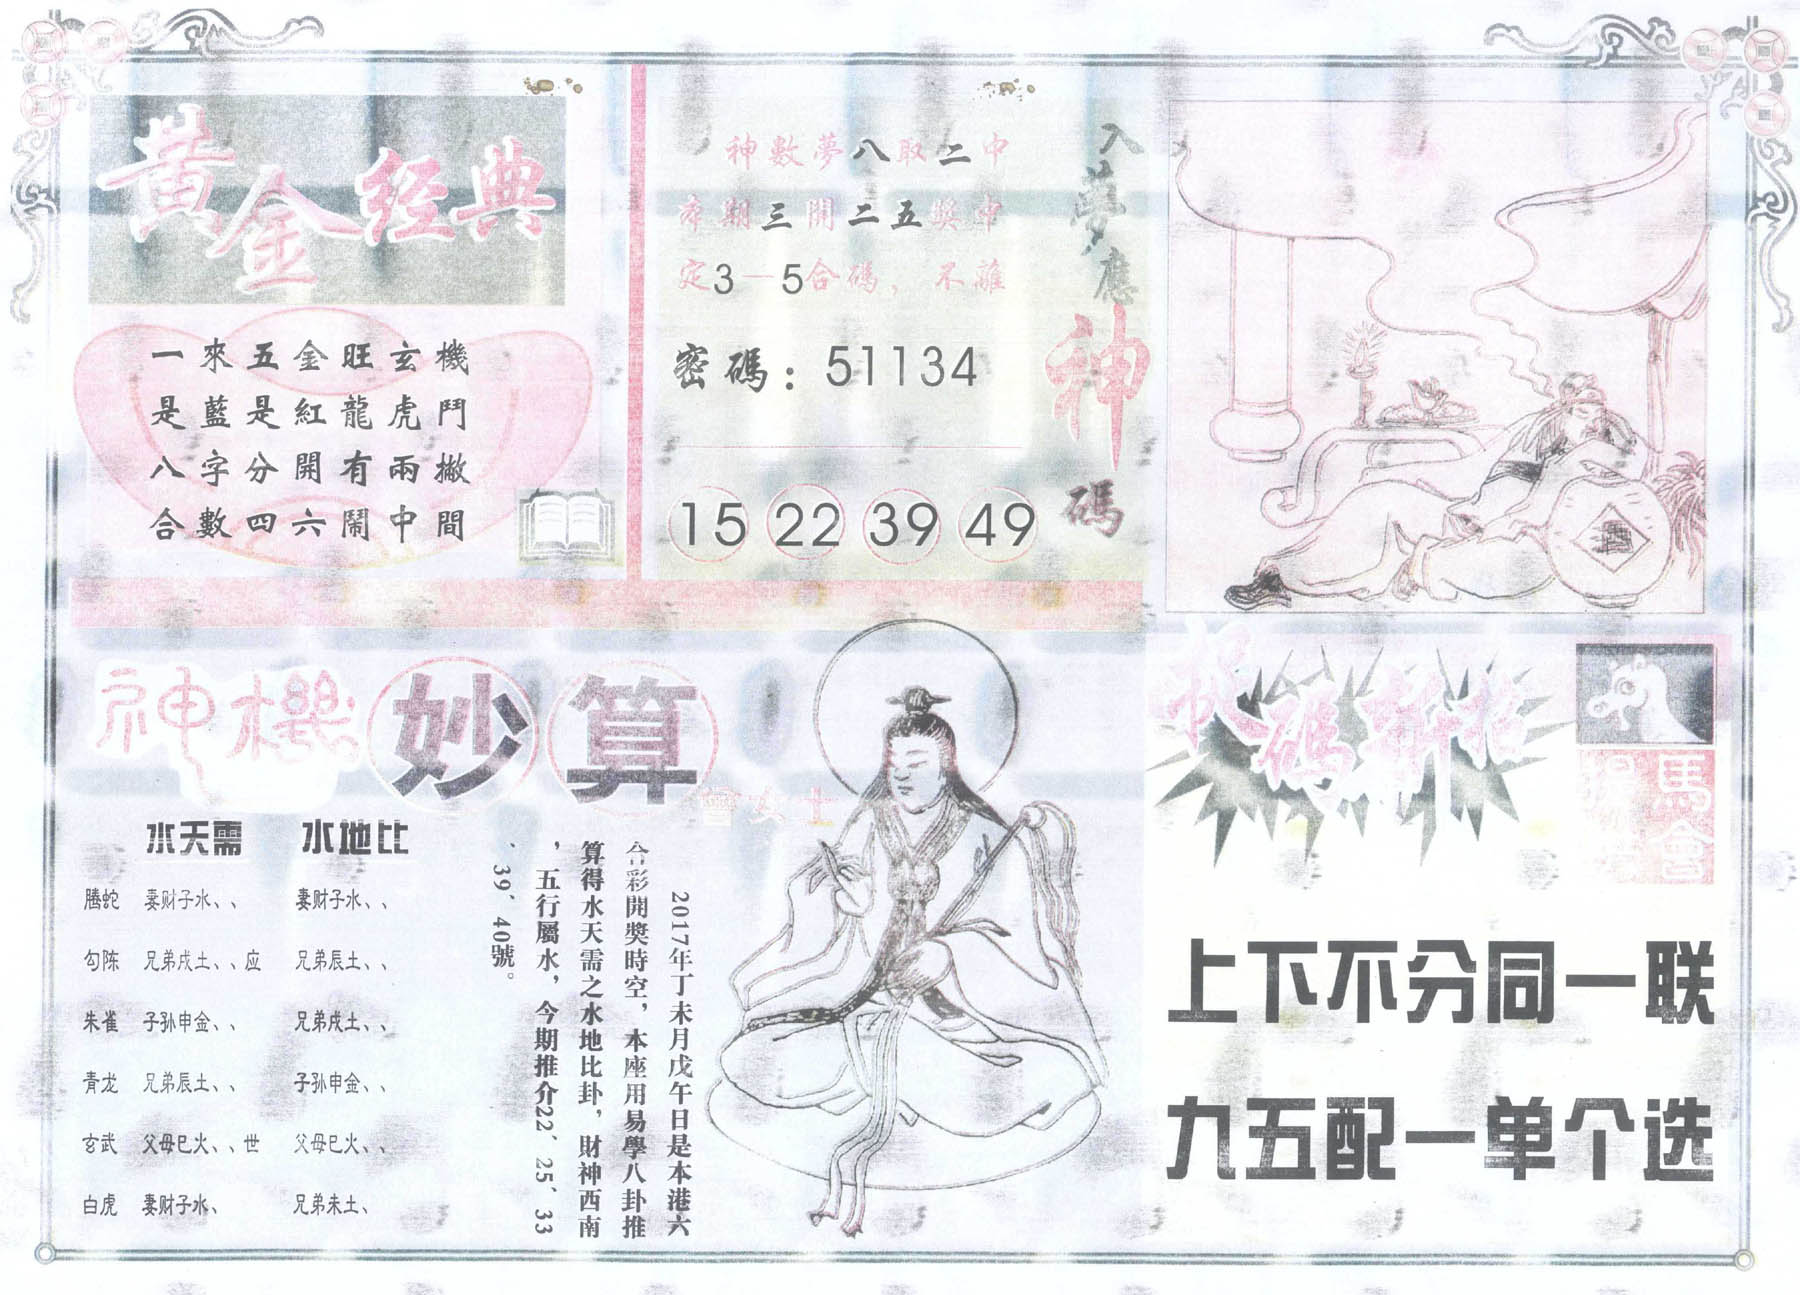 黃金经典
一來五金旺玄機
是藍是紅龍虎鬥
八字分開有兩撇
合數四六鬧中間
神數夢八取二中
本期三開二五獎中
定3—5合碼，不離
密碼：51134
15 22 39 49
入夢應神碼
神機妙算
曾女士
水天需 水地比
腾蛇 妻财子水、、 妻财子水、、
勾陈 兄弟戌土、、应 兄弟辰土、、
朱雀 子孙申金、、 兄弟戌土、、
青龙 兄弟辰土、、 子孙申金、、
玄武 父母巳火、、世 父母巳火、、
白虎 妻财子水、 兄弟未土、
2017年丁未月戊午日是本港六
合彩開獎時空，本座用易學八卦推
算得水天需之水地比卦，財神西南
，五行屬水，今期推介22、25、33
、39、40號。
馬會
上下不分同一联
九五配一单个选